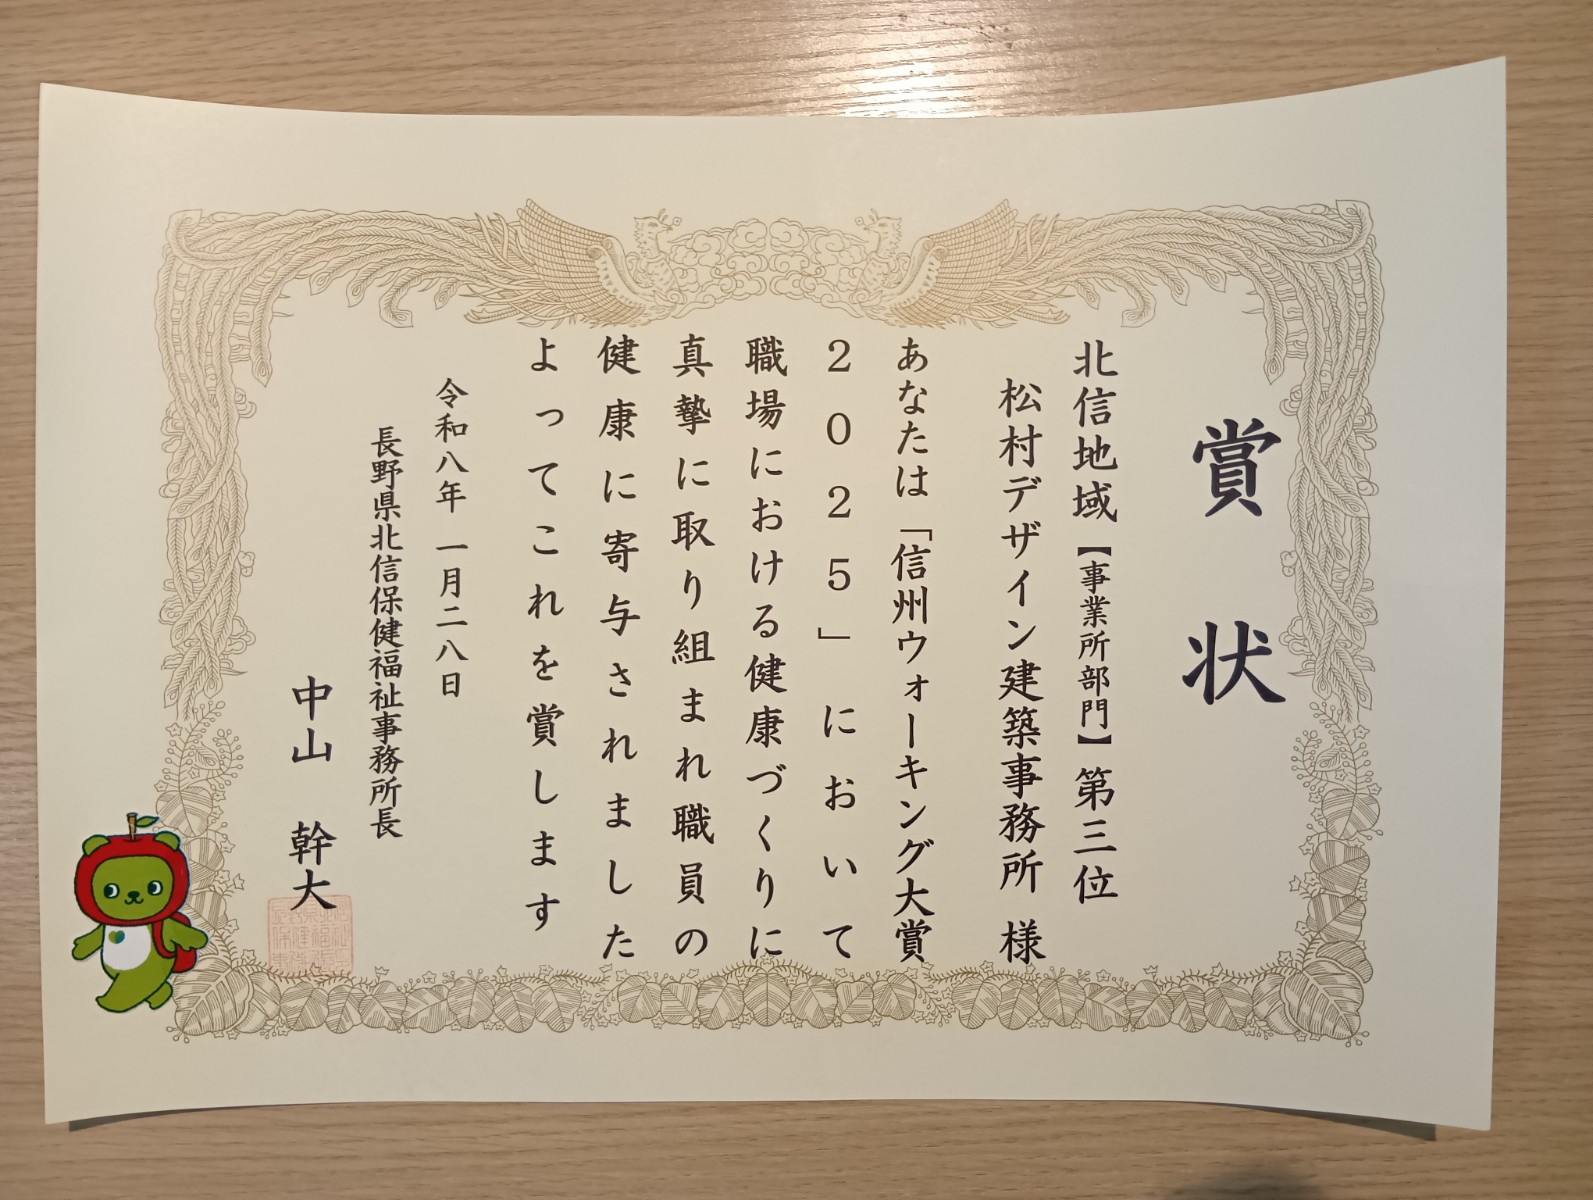 賞状
北信地域【事業所部門】第三位
松村デザイン建築事務所 様
あなたは「信州ウォーキング大賞
2025」において
職場における健康づくりに
真摯に取り組まれ職員の
健康に寄与されました
よってこれを賞します
令和八年 一月二八日
長野県北信保健福祉事務所長
中山 幹大